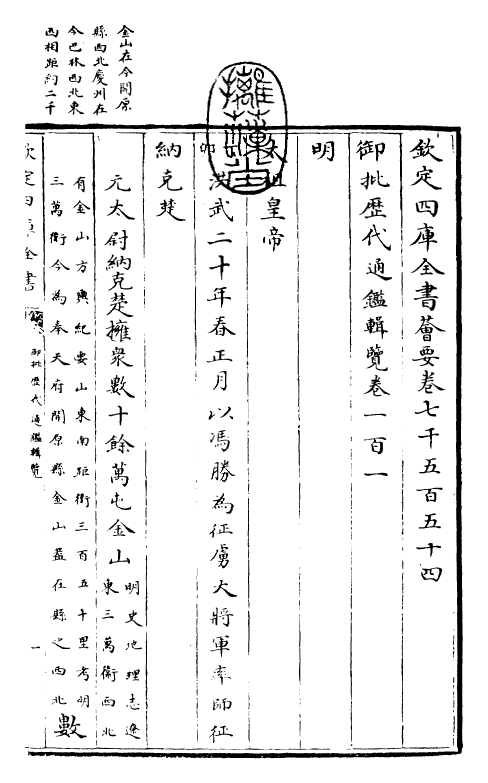 欽定四庫全書薈要卷七千五百五十四
御批歷代通鑑輯覽卷一百一
明
太祖皇帝
卯洪武二十年春正月以馮勝為征虜大將軍率師征
納克楚
元太尉納克楚擁衆數十餘萬屯金山
明史地理志遼
東三萬衛西北
有金山方輿紀要山東南距衛三百五十里考明
三萬衛今為奉天府開原縣金山蓋在縣之西北
數
金山在今開原
縣西北慶州在
今巴林西北東
西相距約二千
欽定四庫全書
御批歷代通鑑輯覽
一
摛藻堂